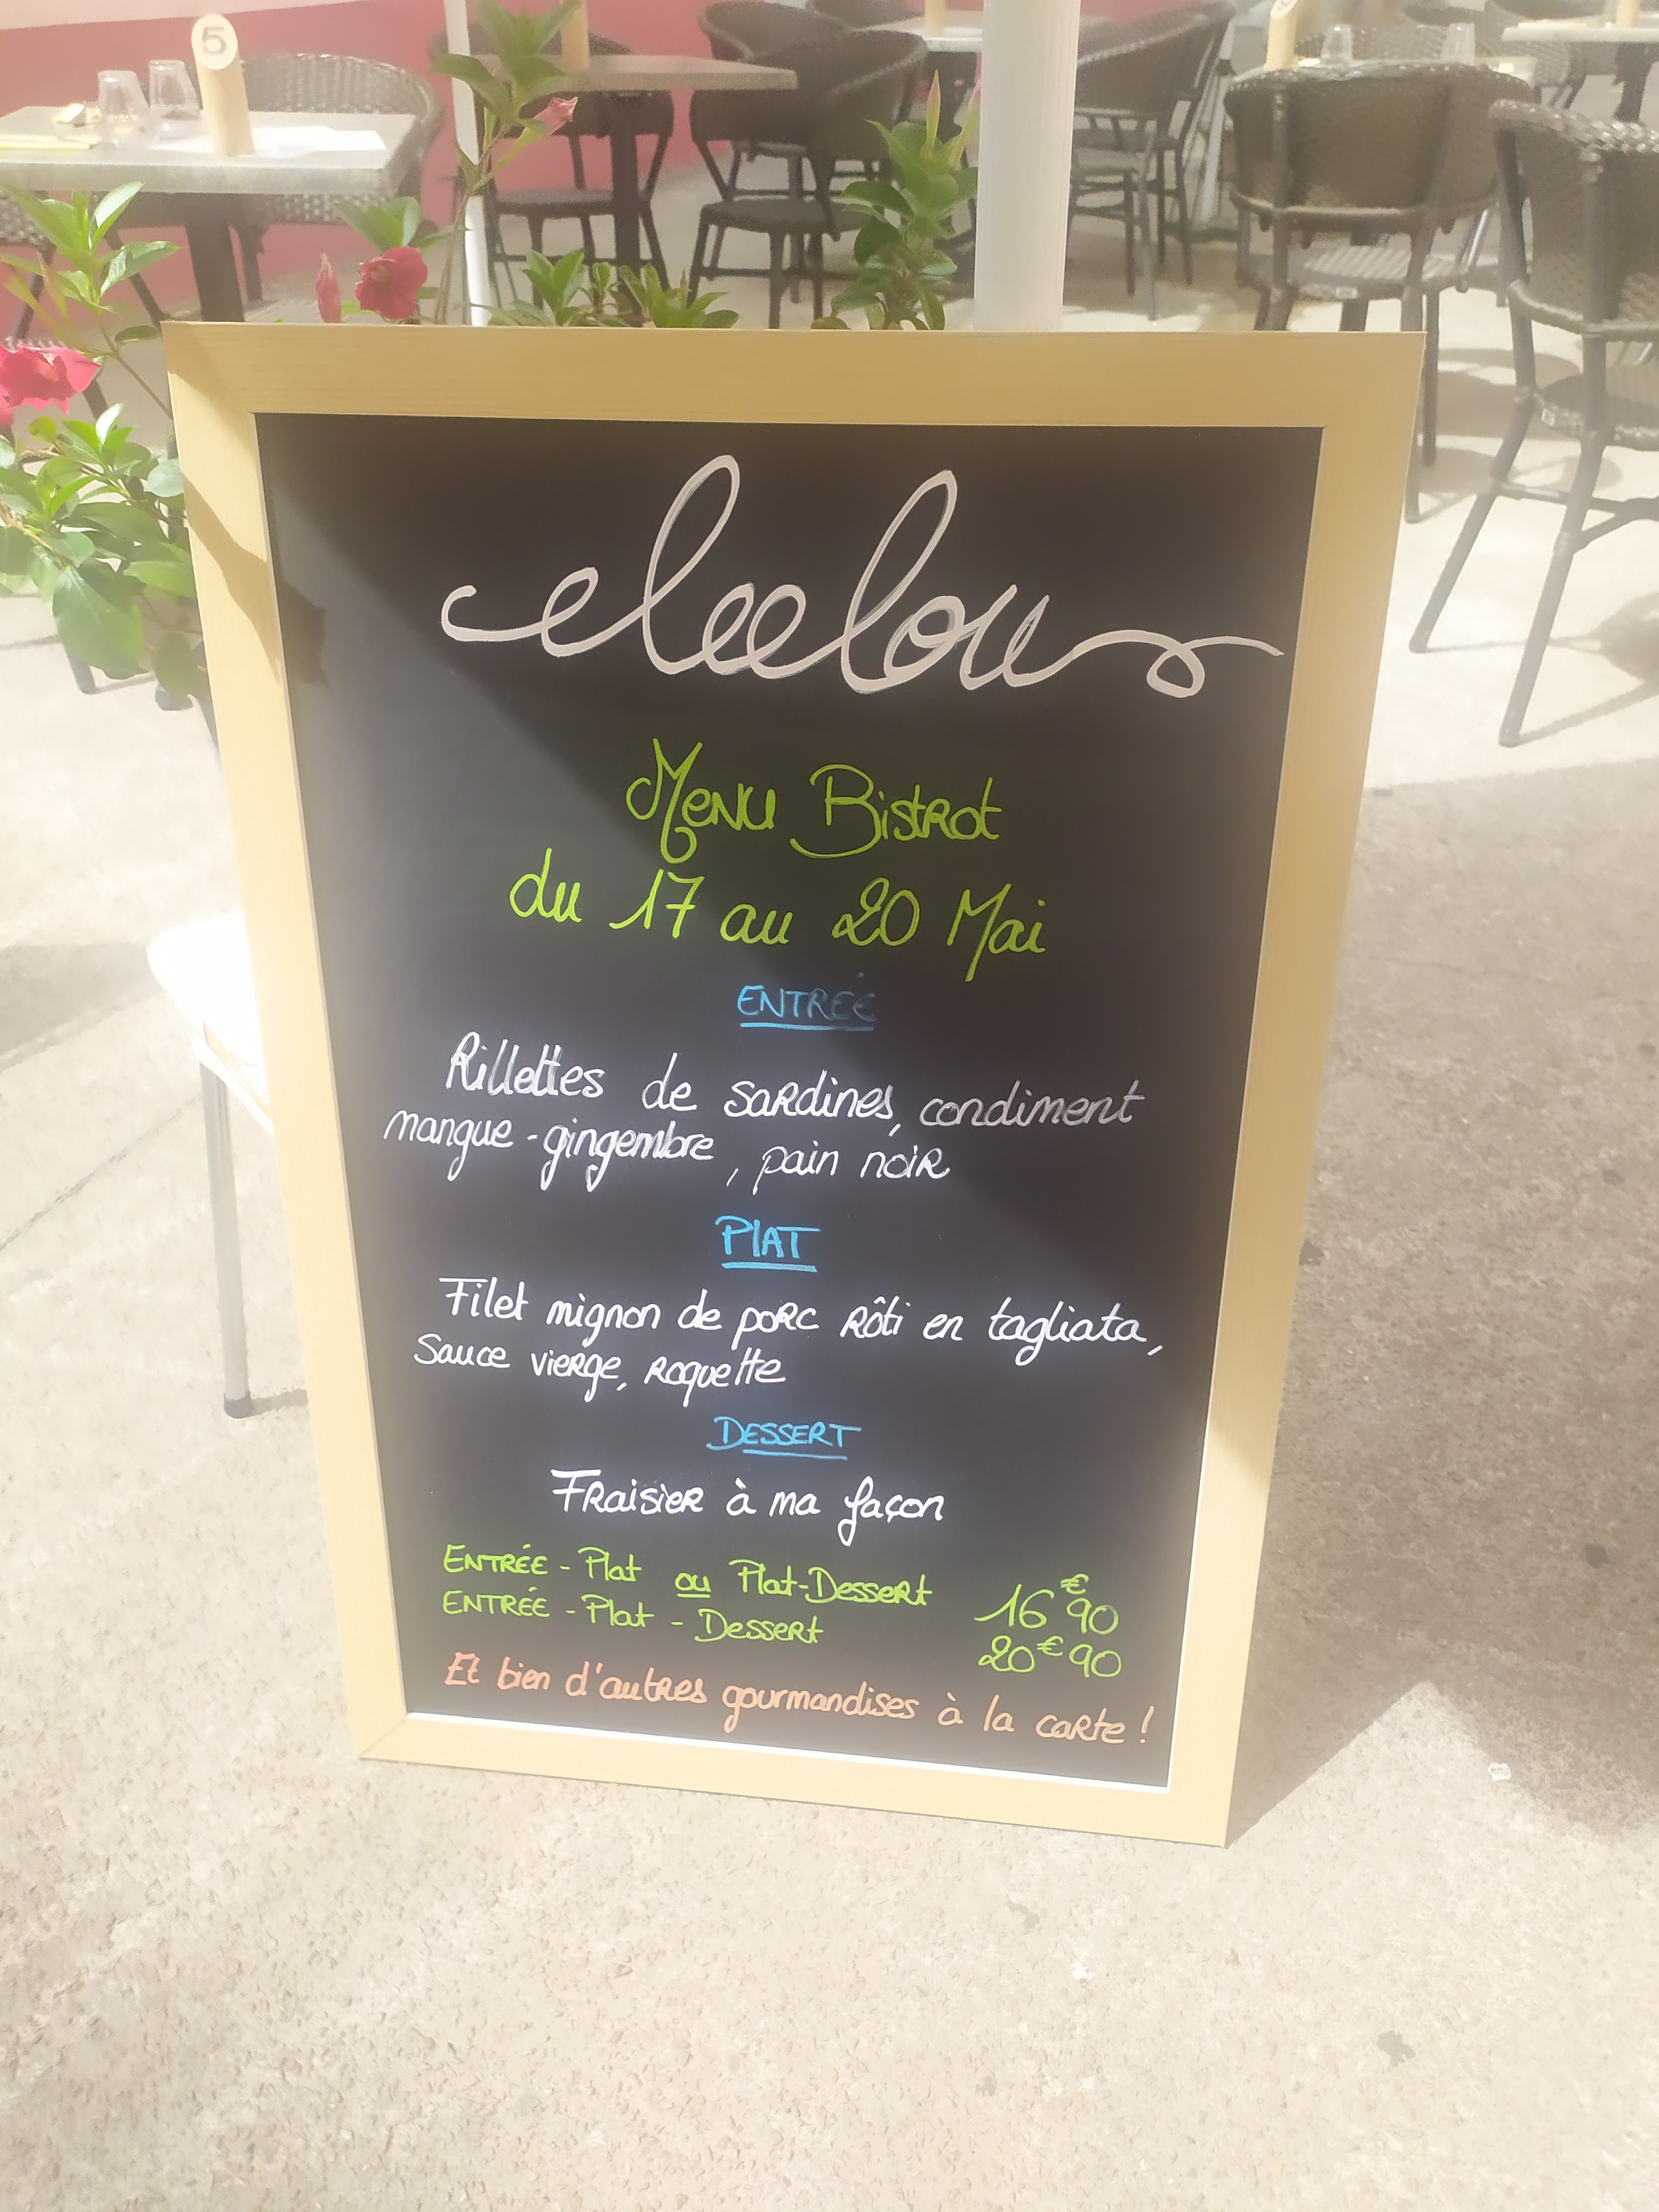 5
eleelou
Menu Bistrot
du 17 au 20 Mai
ENTRÉE
Rillettes de sardines, condiment
mangue-gingembre, pain noir
PLAT
Filet mignon de porc rôti en tagliata,
Sauce vierge, roquette
DESSERT
Fraisier à ma façon
ENTRÉE - Plat ou Plat-Dessert 16€90
ENTRÉE - Plat - Dessert 20€90
Et bien d'autres gourmandises à la carte !